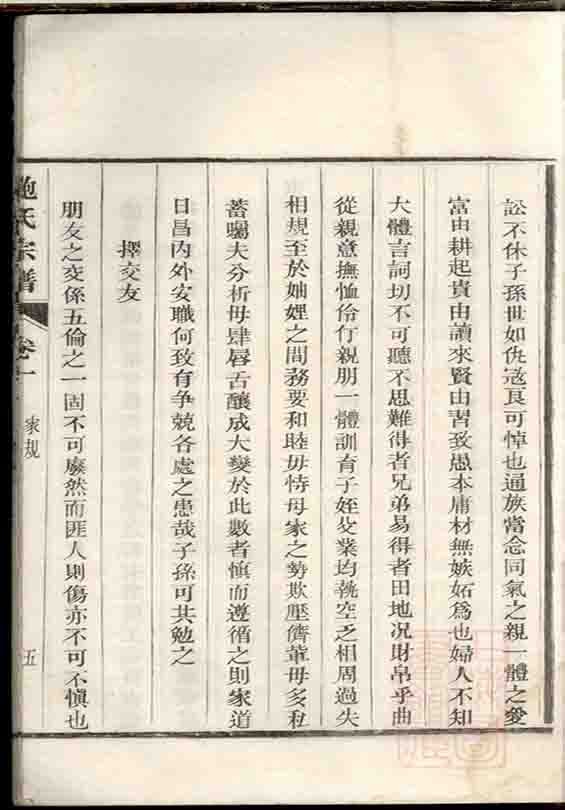 訟不休子孫世如仇寇良可悼也通族當念同氣之親一體之愛
富由耕起貴由讀來賢由習致愚本庸材無嫉妬爲也婦人不知
大體言詞切不可聽不思難得者兄弟易得者田地況財帛乎曲
從親意撫恤伶仃親朋一體訓育子姪殳業均執空乏相周過失
相規至於妯娌之間務要和睦毋恃母家之勢欺壓儕輩毋多私
蓄囑夫分析毋肆唇舌釀成大變於此數者慎而遵循之則家道
日昌內外安職何致有爭競各處之患哉子孫可共勉之
擇交友
朋友之交係五倫之一固不可廢然而匪人則傷亦不可不慎也
鮑氏宗譜 卷一 家規 五